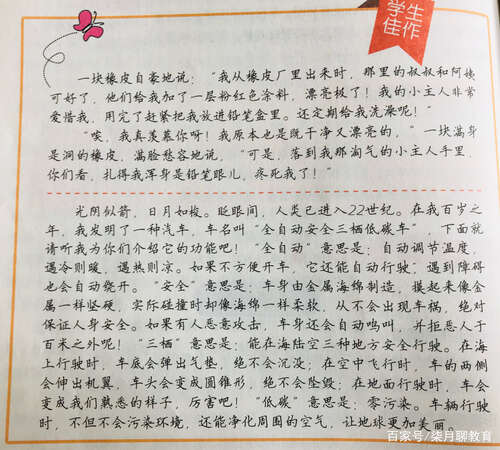 学生
佳作
一块橡皮自豪地说：“我从橡皮厂里出来时，那里的叔叔和阿姨
可好了，他们给我加了一层粉红色涂料，漂亮极了！我的小主人非常
爱惜我，用完了赶紧把我放进铅笔盒里。还定期给我洗澡呢！”
“唉，我真羡慕你呀！我原本也是既干净又漂亮的，”一块满身
是洞的橡皮，满脸愁容地说，“可是，落到我那淘气的小主人手里，
你们看，扎得我浑身是铅笔眼儿，疼死我了！”
光阴似箭，日月如梭。眨眼间，人类已进入22世纪。在我百岁之
年，我发明了一种汽车，车名叫“全自动安全三栖低碳车”，下面就
请听我为你们介绍它的功能吧！“全自动”意思是：自动调节温度，
遇冷则暖，遇热则凉。如果不方便开车，它还能自动行驶；遇到障碍
也会自动绕开。“安全”意思是：车身由金属海绵制造，摸起来像金
属一样坚硬，实际碰撞时却像海绵一样柔软，从不会出现车祸，绝对
保证人身安全。如果有人恶意攻击，车身还会自动鸣叫，并拒恶人于
百米之外呢！“三栖”意思是：能在海陆空三种地方安全行驶。在海
上行驶时，车底会弹出气垫，绝不会沉没；在空中飞行时，车的两侧
会伸出机翼，车头会变成圆锥形，绝不会坠毁；在地面行驶时，车会
变成我们熟悉的样子，厉害吧！“低碳”意思是：零污染。车辆行驶
时，不但不会污染环境，还能净化周围的空气，让地球更加美丽。
百家号/柒月聊教育